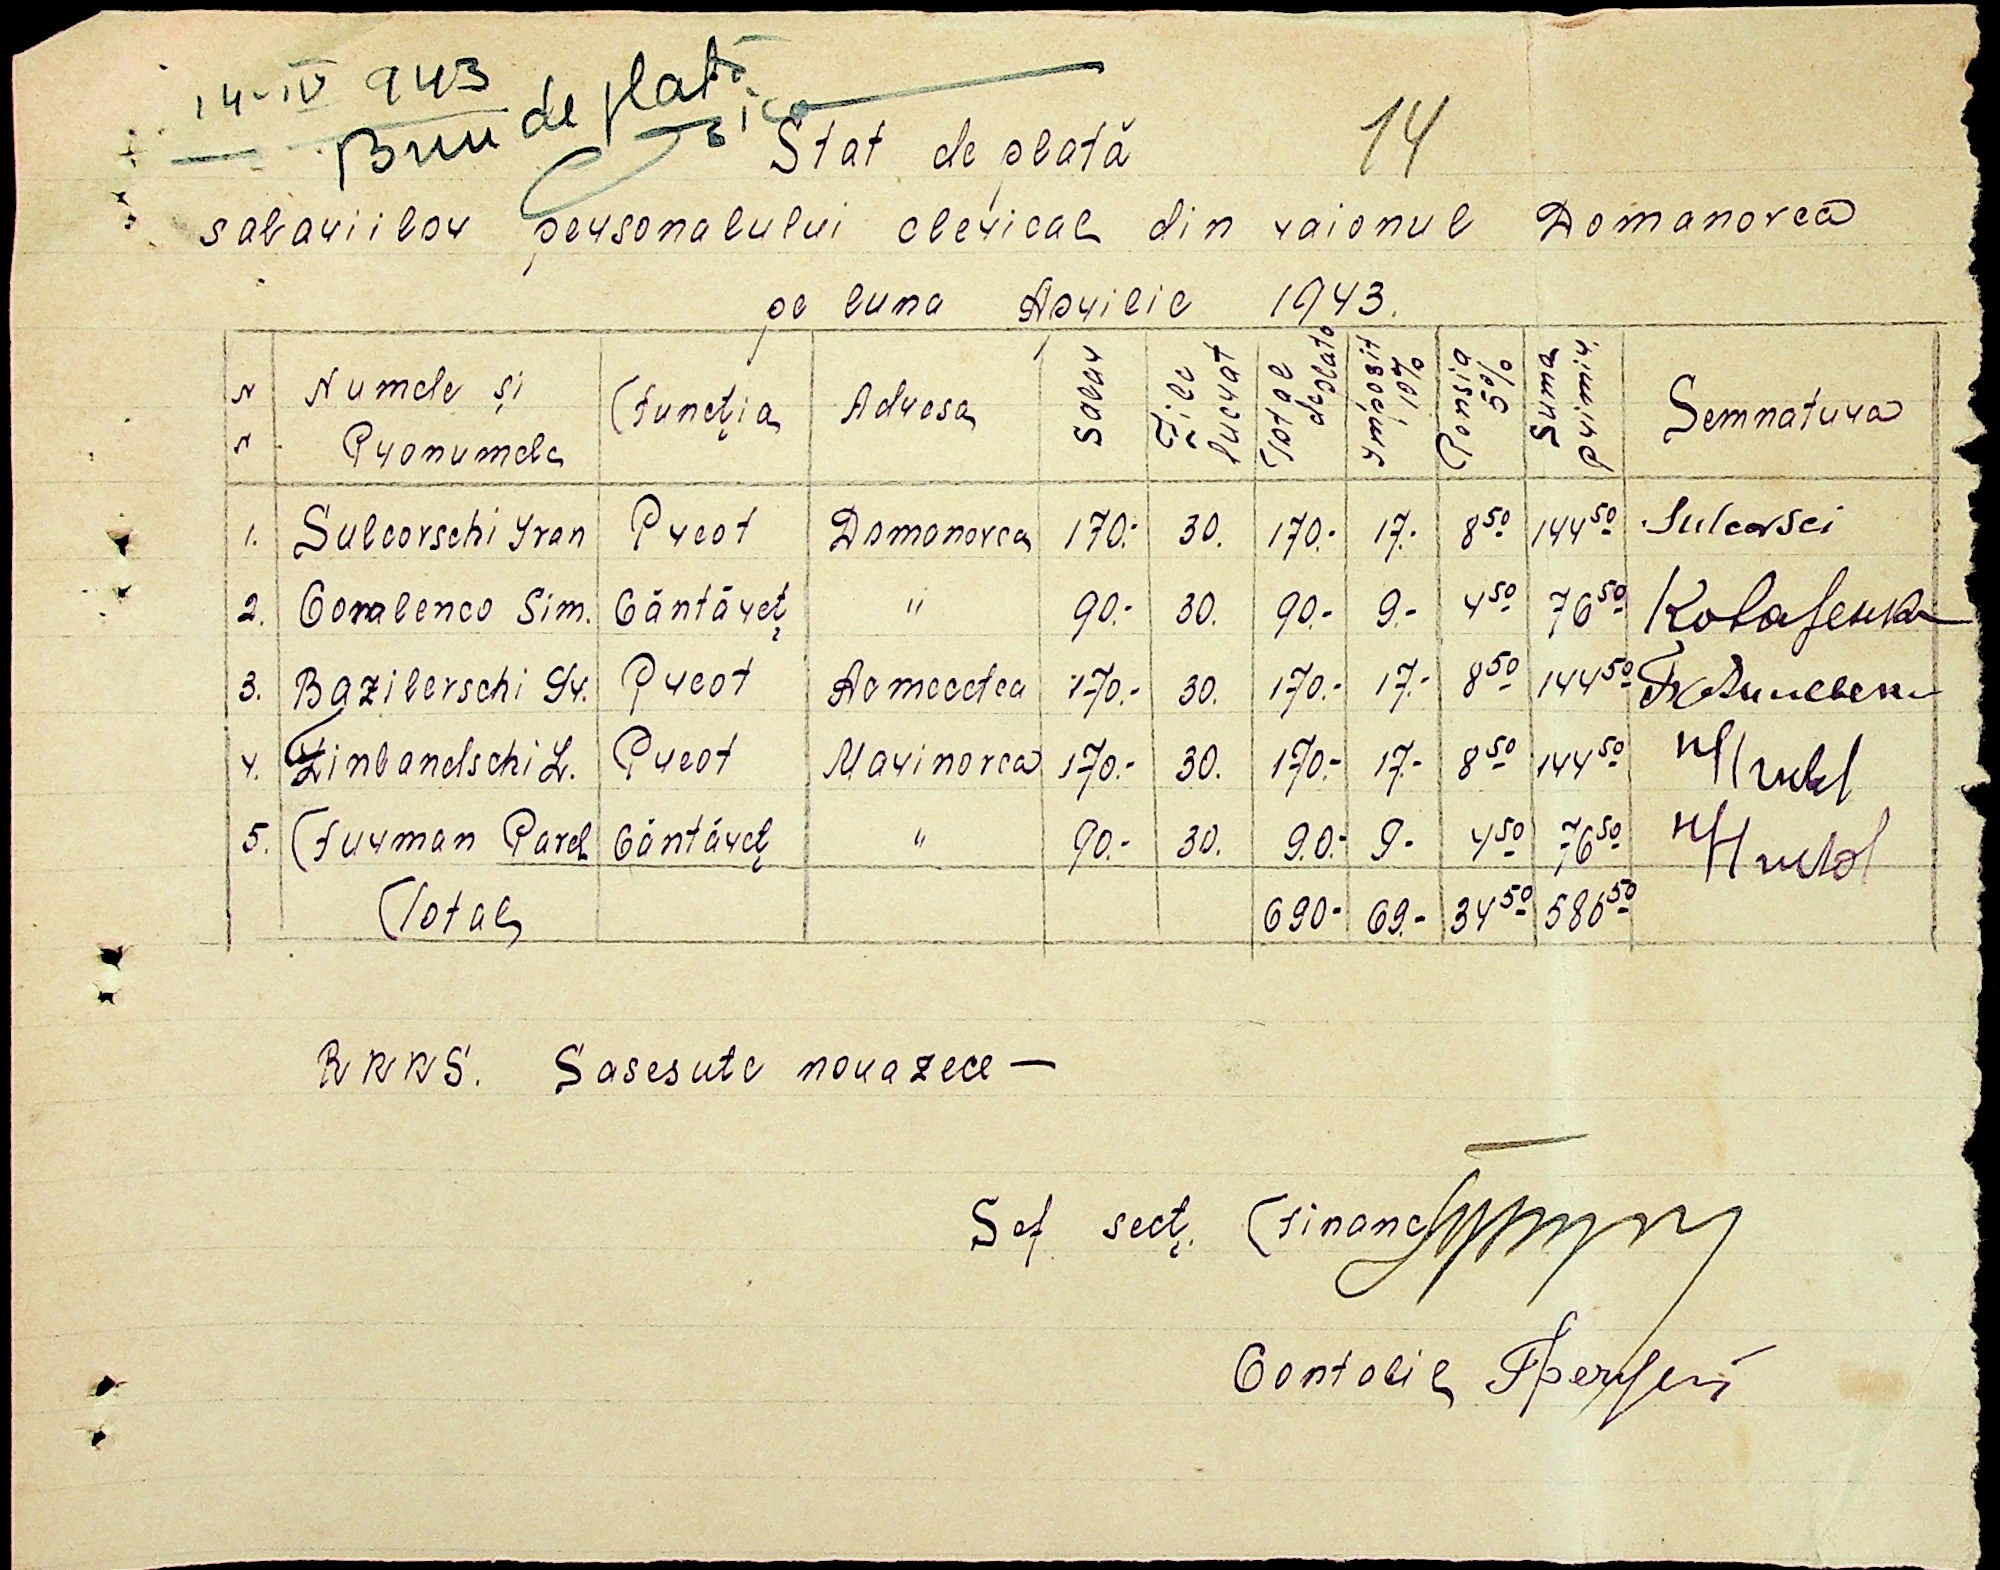 14-IV 943
Bun de plată
14
Stat de plată
salariilor personalului clerical din raionul Domanovca
pe luna Aprilie 1943.
N N Numele și Pronumele Funcția Adresa Salar Zile lucrat Total deplata Impozit 10% Pensia 5% Suma primiri Semnatura
1. Sulcovschi Ivan Preot Domanovca 170.- 30. 170.- 17.- 8 50 144 50 Sulcovsci
2. Covalenco Sim. Cântăreț " 90.- 30. 90.- 9.- 4 50 76 50
3. Bazilevschi Gr. Preot Acmecetca 170.- 30. 170.- 17.- 8 50 144 50
4. Zinbandschi L. Preot Marinovca 170.- 30. 170.- 17.- 8 50 144 50
5. Furman Pavel Cântăreț " 90.- 30. 90.- 9.- 4 50 76 50
Total 690.- 69.- 34 50 586 50
RKKS. Sasesute nouazece —
Sef secț. Financ
Contobil